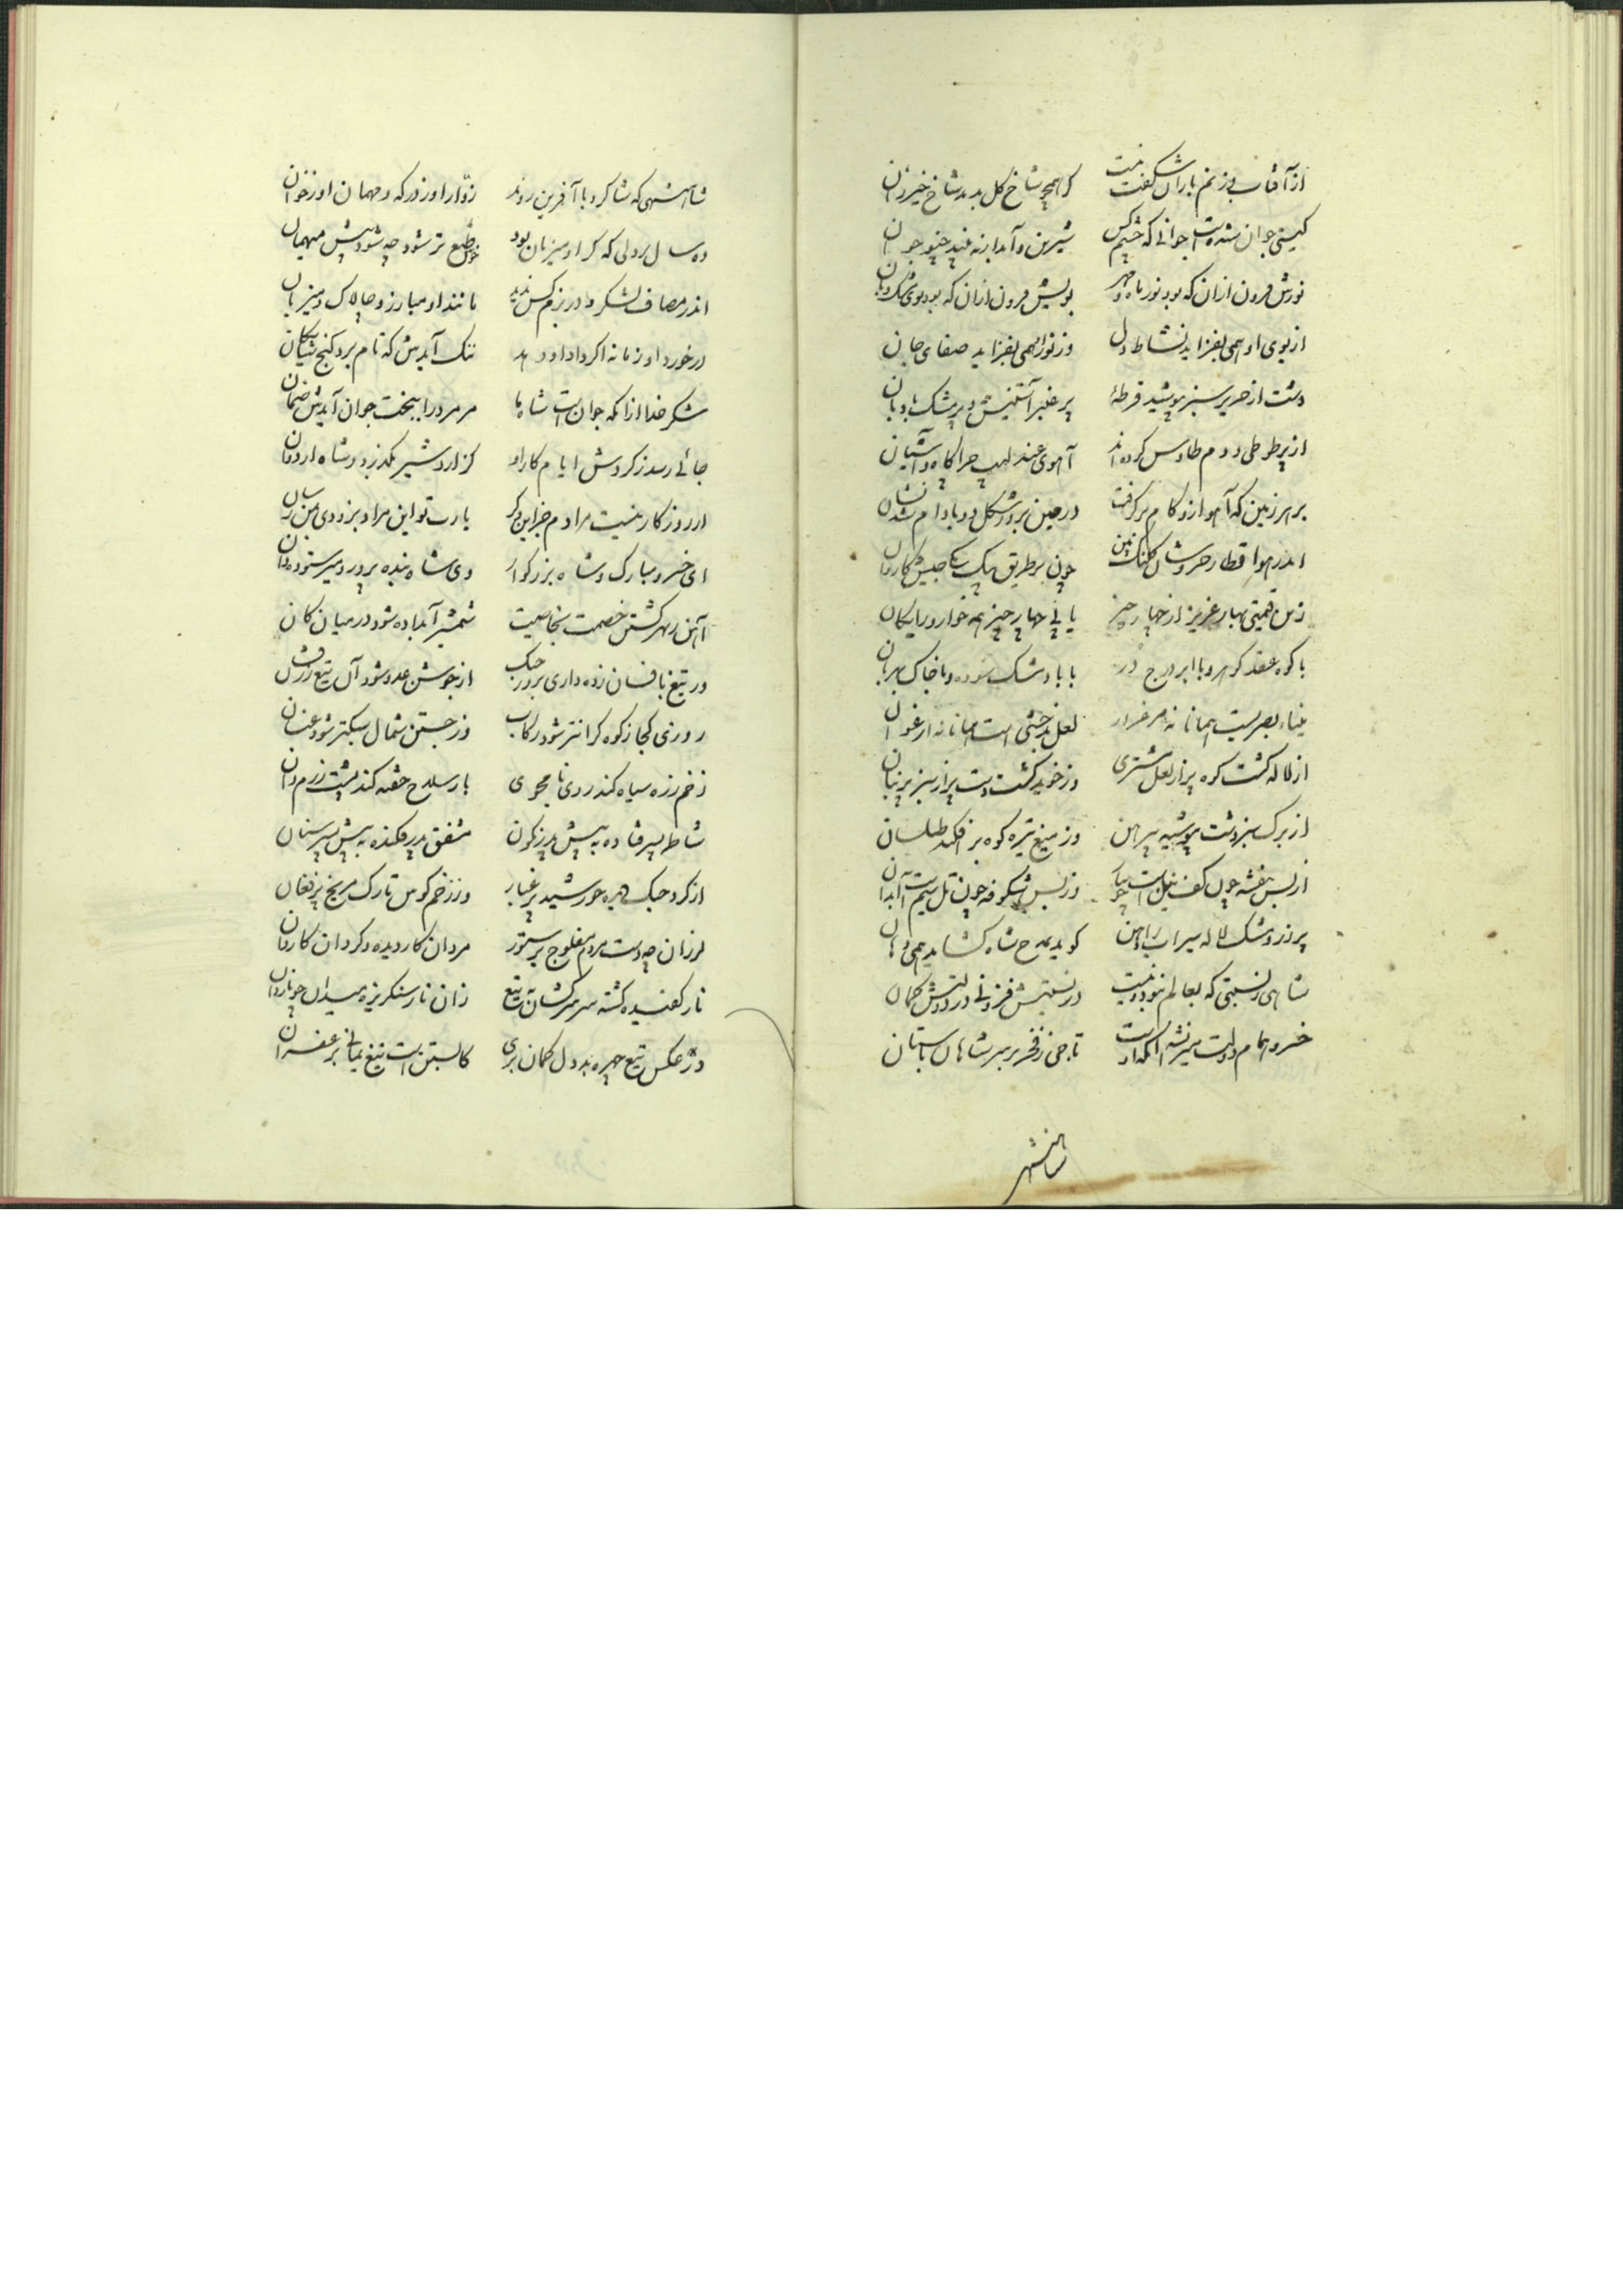 از آفتاب و ز نم باران شکفت نیست کر همچو شاخ کل بدمد شاخ خیزران
کیتی جوان شدست جوانی که چشم کس شیرین و آبدار نه بیند چنو جوان
نورش فزون ازان که بود نور ماه و مهر بویش فزون ازان که بود بوی مشک و بان
از بوی او همی بفزاید نشاط دل وز نور او همی بفزاید صفای جان
دشت از حریر سبز بپوشید قرطهٔ پر عنبر آستینش و پر مشک بادبان
از پر طوطی و دم طاوس کرده اند آهوی عندلیب چراکاه و آشیان
بر هر زمین که آهو ازو کام برکرفت در حین برو شکل دو بادام شد نشان
اندر هوا قطار خروشان کلنک بین چون بر طریق مکه یکی جیش کاروان
زین قیمتی بهار عزیز از چهار چیز یابی چهار چیز همه خوار و رایکان
با کوه عقد کوهر و با ابر درج در با باد مشک سوده و با خاک بهرمان
میناء بصریست همانا نه مرغزار لعل بدخشی است همانا نه ارغوان
از لاله کشت کوه پر از لعل مشتری وز خوید کشت دشت پر از سبز پرنیان
از برک سبز دشت بپوشید پیرهن وز میغ تیره کوه برافکند طیلسان
از بس بنفشه چون کف نیل است جویبار وز بس شکوفه چون تل سیم است آبدان
پر زر و مشک لاله سیراب را دهن کوید بمدح شاه کشاید همی دهان
شاهی ز نسبتی که بعالم نبود و نیست در نسبتش فزونی و در دولتش کمان
خسرو همام دولت میر نشه آنکه داد تاجی ز فخر بر سر شاهان باستان
شاهنشهی
شاهنشهی که شاکر و با آفرین روند زوار او ز درکه و مهمان او ز خوان
ده سال بر دلی که کر او میزبان بود خوش طبع تر شود چه شود پیش میهمان
اندر مصاف لشکر و در بزم کس ندید مانند او مبارز و چالاک و میزبان
در خورد او زمانه اکر داد او دهد ننک آیدش که نام برد کنج شایکان
شکر خدا از آنکه جوان است شاه ما مر مرد را ببخت جوان آیدش ضمان
جائی رسد ز کردش ایام کار او کز اردشیر بکذرد و شاه اردوان
از روزکار نیست مرادم جز این دکر یا رب تو این مراد بزودی بمن رسان
ای خسرو مبارک و شاه بزرکوار وی شاه بنده پرور و میر ستوده دان
آهن ز بهر کشتن خصمت بخاصیت شمشیر آبداده شود در میان کان
ور تیغ با فسان زده داری بروز جنک از جوش عدو شود آن تیغ را فسان
روزی کجا ز کوه کرانتر شود رکاب وز جستن شمال سبکتر شود عنان
زخم زره سیاه کند روی نامجوی بار سلاح خفته کند پشت رزم دان
شاطر سپر فتاده به پیش پدر نکون مشفق پدر فکنده به پیش پسر سنان
از کرد جنک چهره خورشید پر غبار وز زخم کوس تارک مریخ پر فغان
لرزان چو دست مردم مفلوج بر ستور مردان کار دیده و کردان کاردان
نار کفیده کشته سر سرکشان ز تیغ زان نار سنکریزه میدان چو ناردان
وز عکس تیغ چهره بددل کمان بری کابستن است تیغ یمانی بزعفران